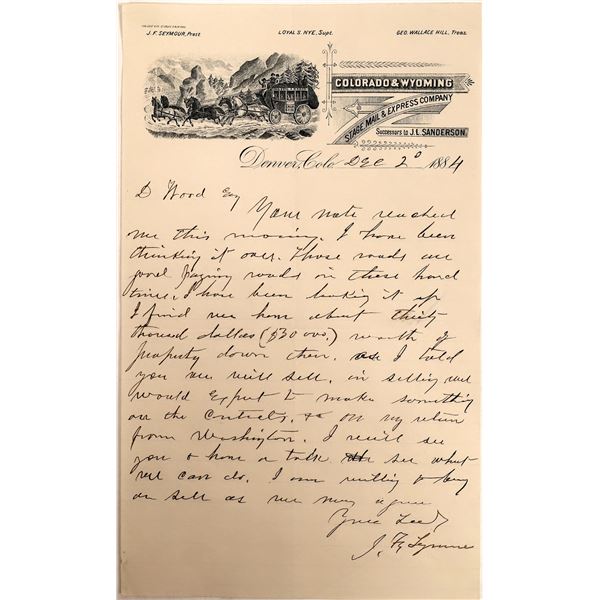 J. F. SEYMOUR, Prest
LOYAL S. NYE, Supt.
GEO. WALLACE HILL, Treas.
COLORADO & WYOMING
STAGE MAIL & EXPRESS COMPANY
Successors to J. L. SANDERSON.
Denver, Colo. Dec 2d 1884
D Wood Esq
Your note reached
me this morning. I have been
thinking it over. Those roads are
good paying roads in these hard
times. I have been looking it up
I find we have about thirty
thousand dollars ($30 000.) worth of
property down there. as I told
you we will sell. in selling we
would expect to make something
on the contracts. &c on my return
from Washington. I will see
you & have a talk see what
we can do. I am willing to buy
or sell as we may agree
J. F. Seymour